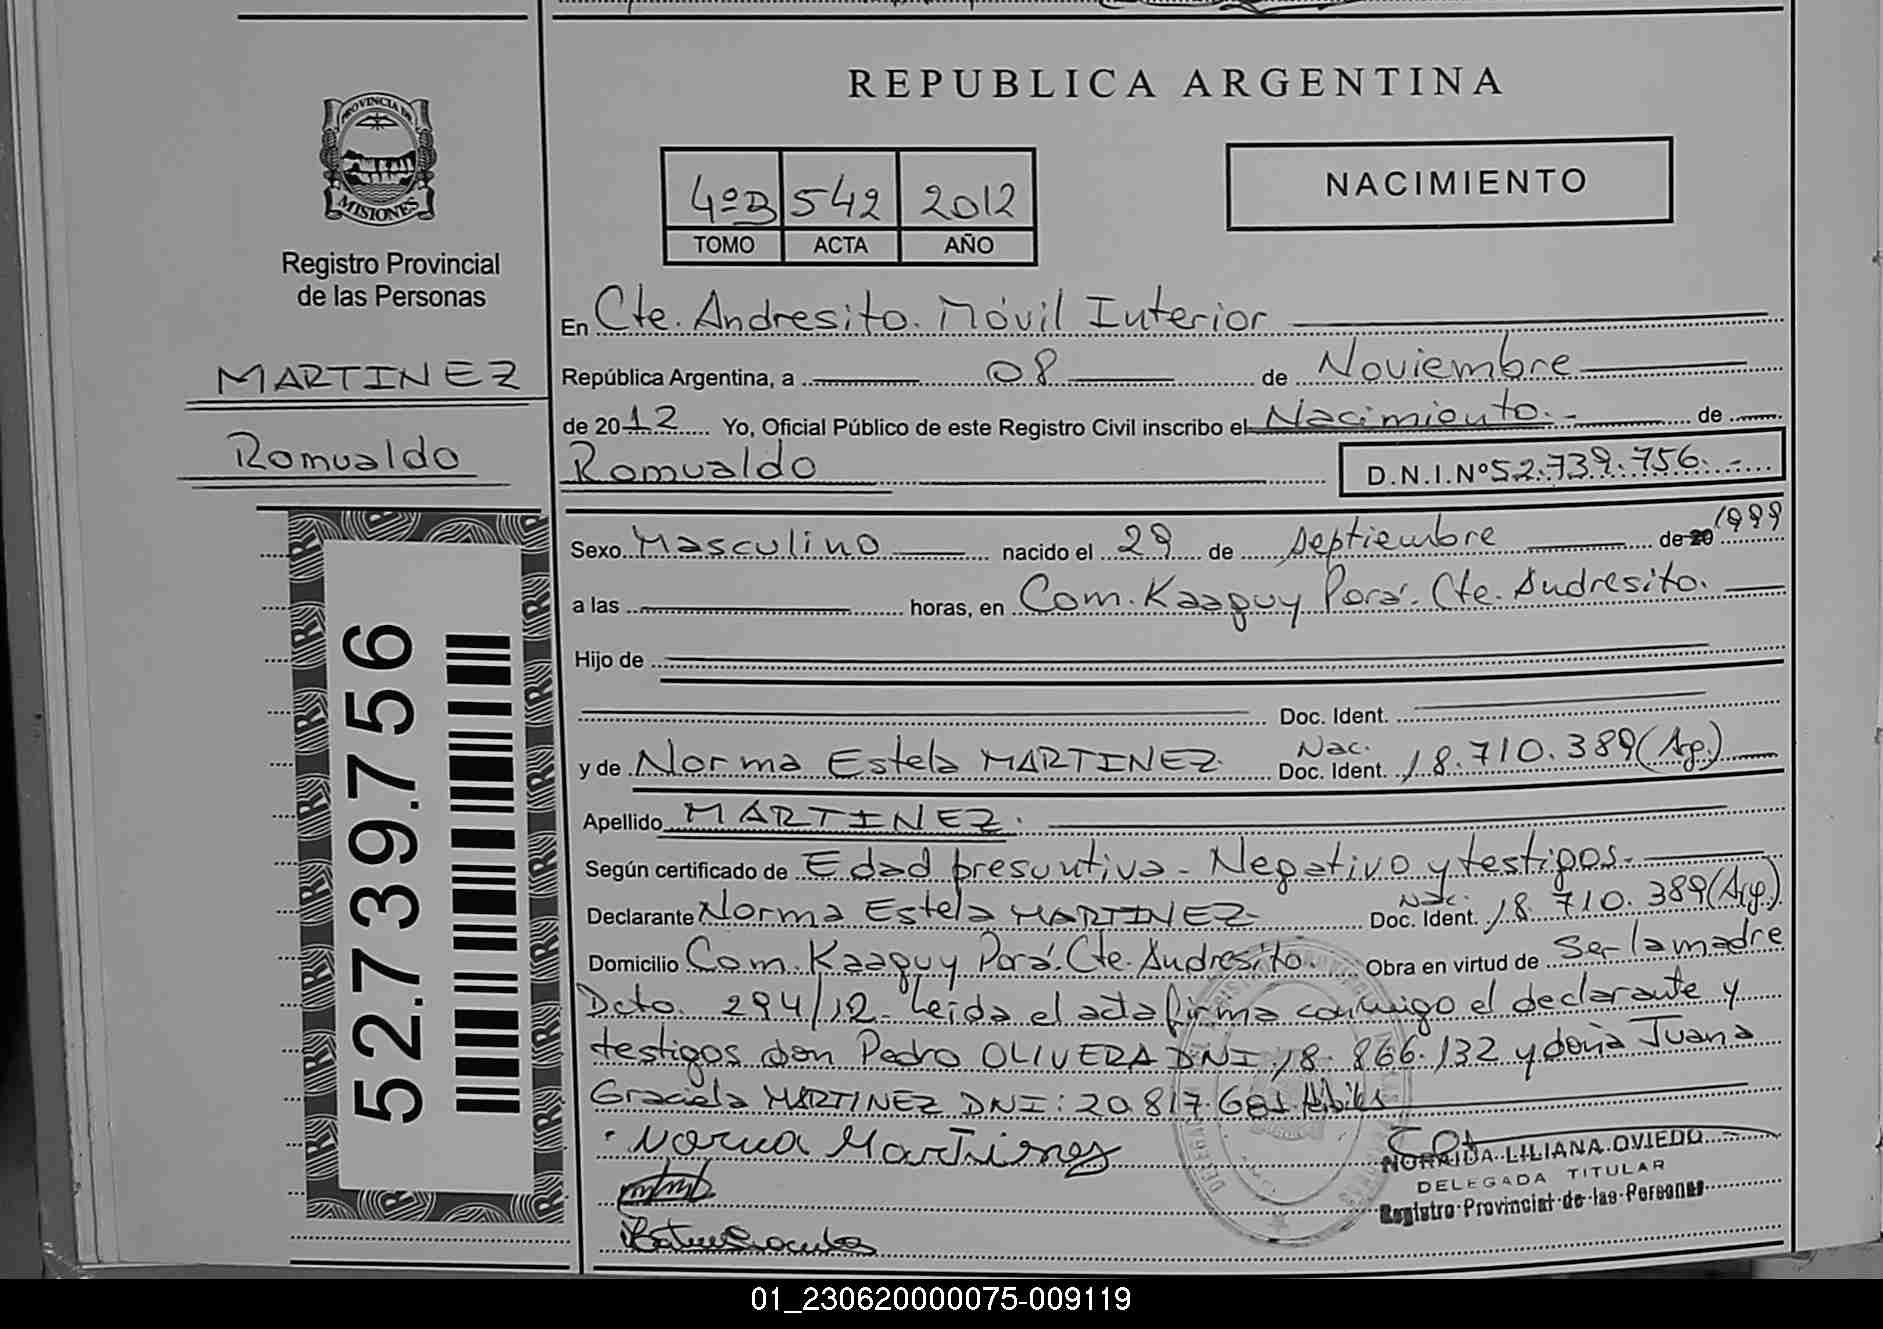 REPUBLICA ARGENTINA
PROVINCIA DE
MISIONES
Registro Provincial
de las Personas
MARTINEZ
Romualdo
52.739.756
4ºB 542 2012
TOMO ACTA AÑO
NACIMIENTO
En Cte. Andresito. Móvil Interior
República Argentina, a 08 de Noviembre
de 2012 Yo, Oficial Público de este Registro Civil inscribo el Nacimiento.- de
Romualdo D.N.I.Nº 52.739.756.-
Sexo Masculino nacido el 29 de septiembre de 20 1999
a las horas, en Com. Kaaguy Porá. Cte. Andresito.
Hijo de
Doc. Ident.
y de Norma Estela MARTINEZ Nac. Doc. Ident. 18.710.389 (Arg.)
Apellido MARTINEZ.
Según certificado de Edad presuntiva - Negativo y testigos.-
Declarante Norma Estela MARTINEZ- Nac. Doc. Ident. 18.710.389 (Arg.)
Domicilio Com. Kaaguy Porá. Cte. Andresito. Obra en virtud de Ser la madre
Dcto. 294/12. Leída el acta firma conmigo el declarante y
testigos don Pedro OLIVERA DNI 18.866.132 y doña Juana
Graciela MARTINEZ DNI: 20.817.681. Hábiles
Norma Martines
NORAIDA LILIANA OVIEDO
DELEGADA TITULAR
Registro Provincial de las Personas
01_230620000075-009119